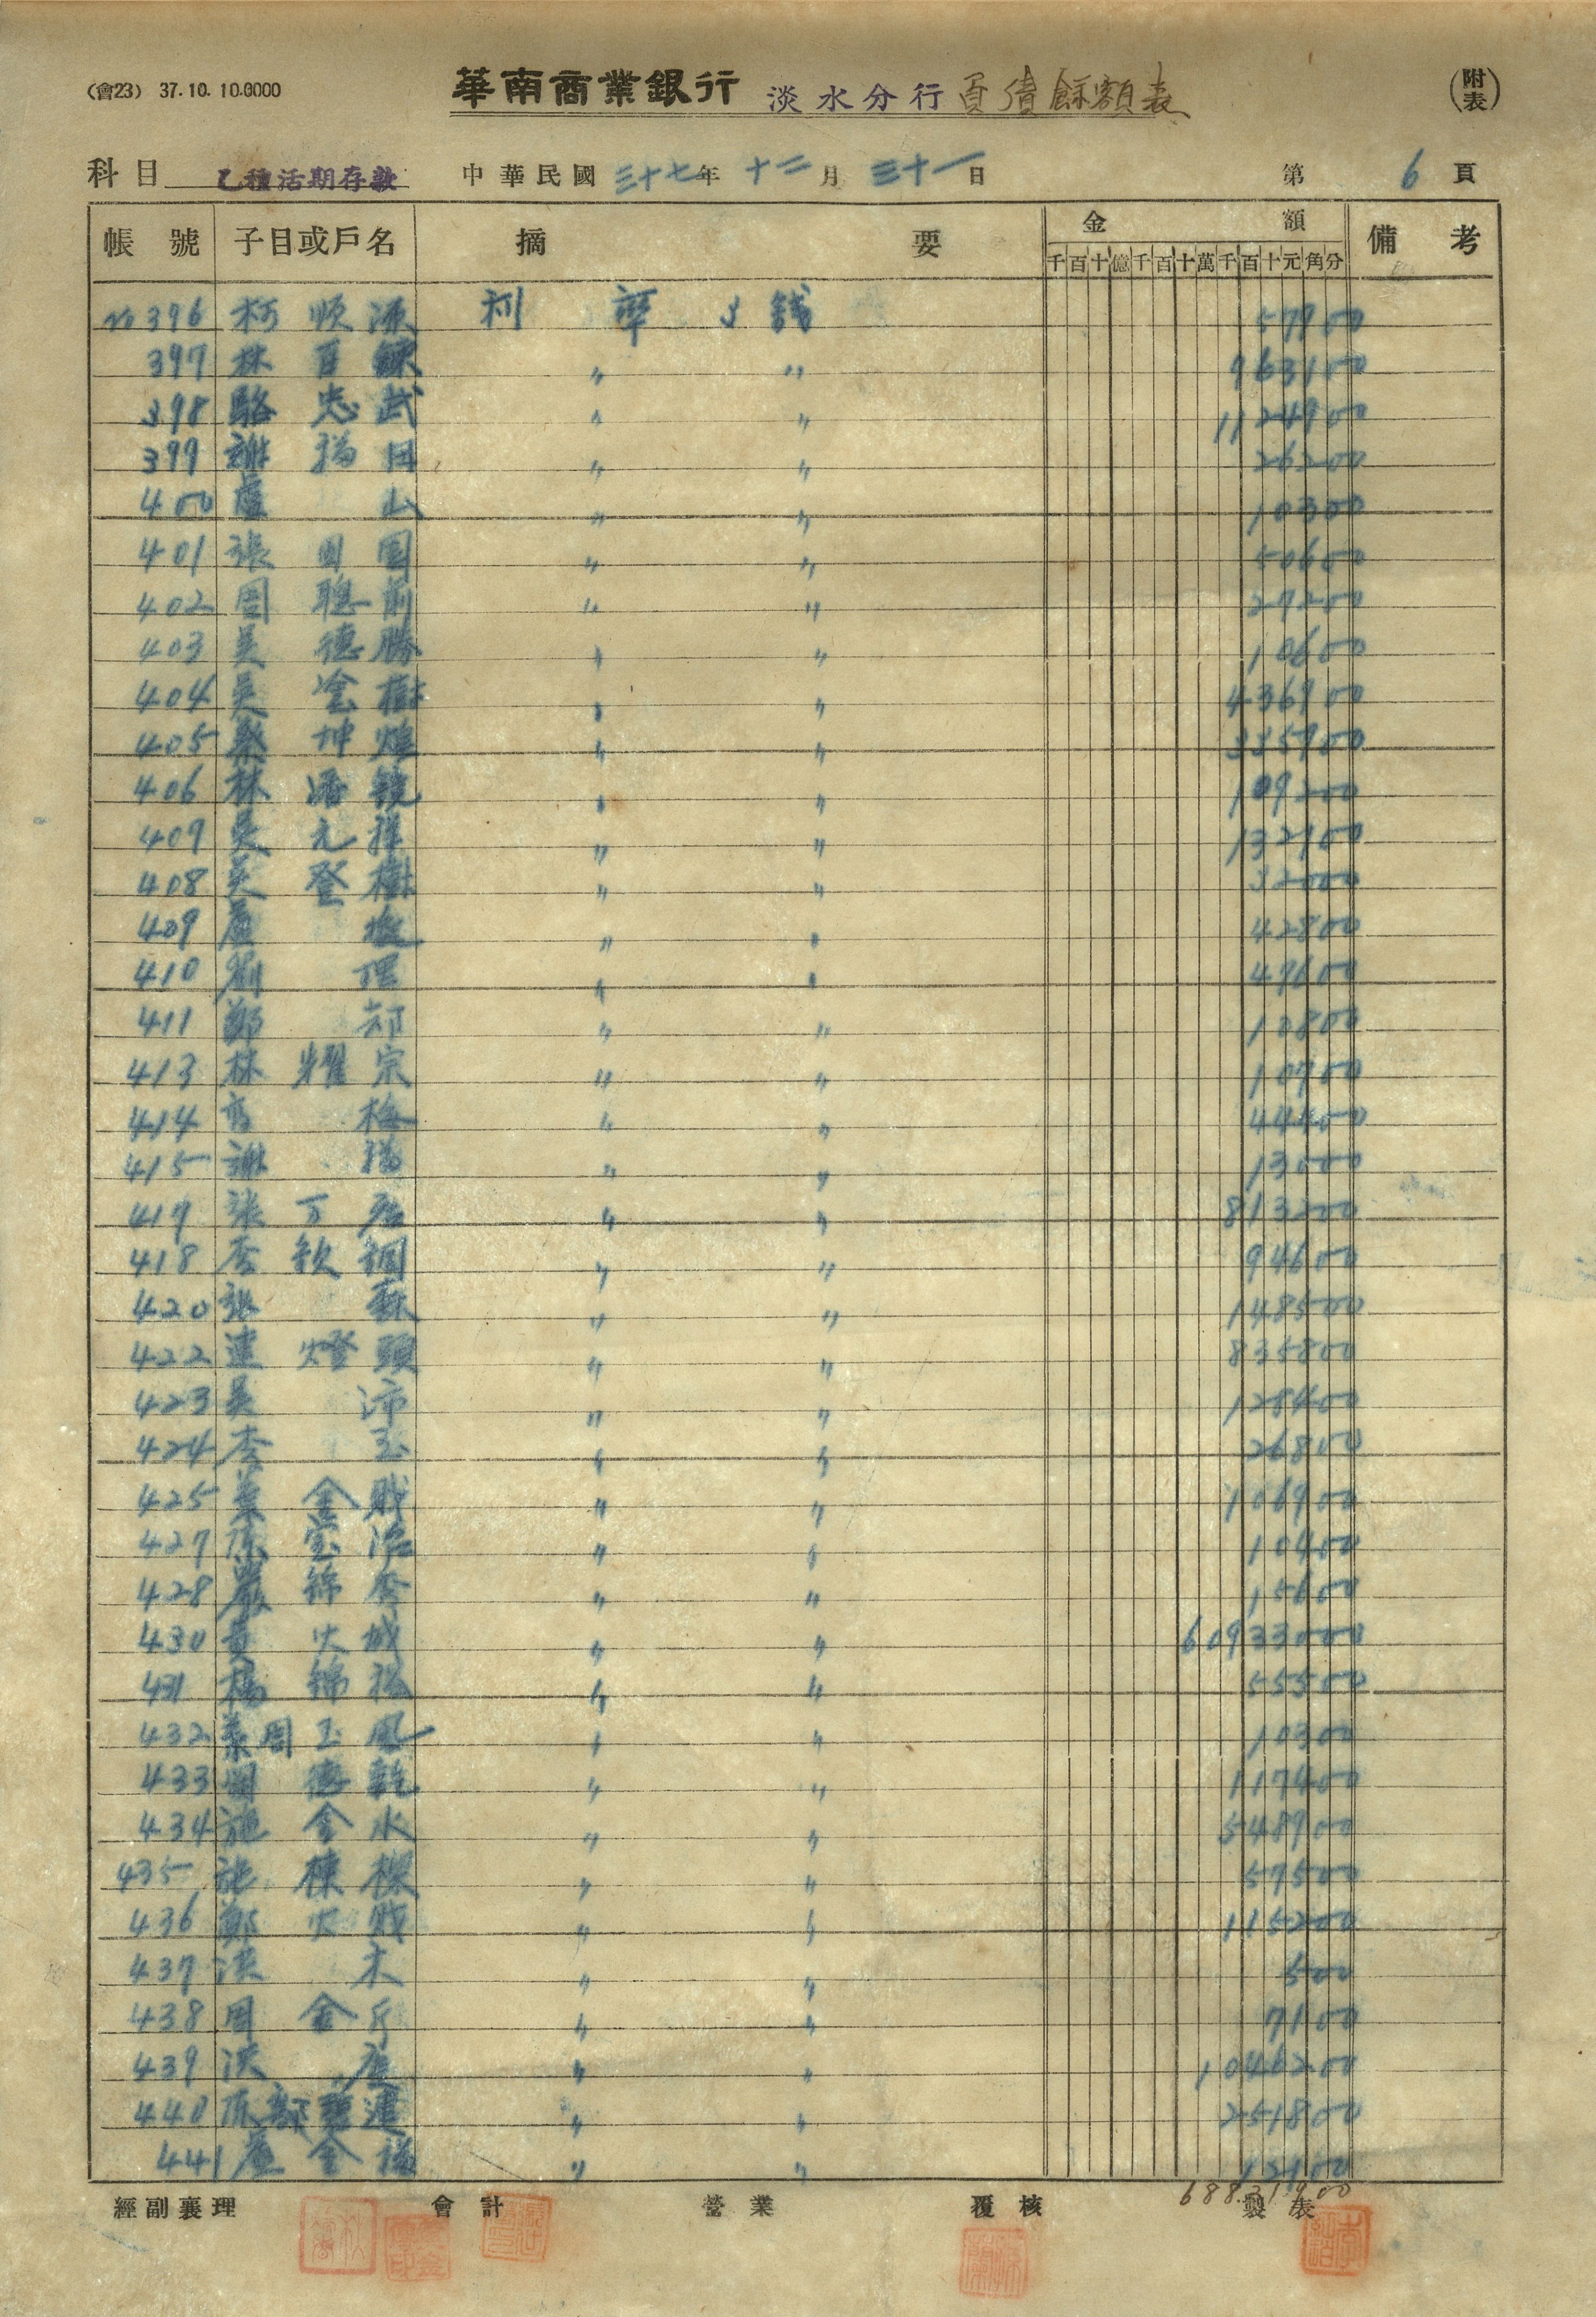 (會23) 37.10.10.0000
華南商業銀行 淡水分行 負債餘額表
(附表)
科目 乙種活期存款 中華民國 三十七年 十二月 三十一日 第 6 頁
帳號 子目或戶名 摘要 金額 備考
千百十億千百十萬千百十元角分
no 396 柯順源 利率 3錢 57900
397 林百鍊 〃 〃 963100
398 駱忠武 〃 〃 1124900
399 謝 〃 〃 26200
400 盧山 〃 〃 10300
401 張 〃 〃 50600
402 周聰前 〃 〃 27200
403 吳德勝 〃 〃 10600
404 吳金樹 〃 〃 436900
405 坤煌 〃 〃 335900
406 林添鏡 〃 〃 109200
409 吳元祥 〃 〃 132900
408 吳登樹 〃 〃 32000
409 盧 〃 〃 42800
410 劉 〃 〃 47600
411 鄭却 〃 〃 10800
413 林耀宗 〃 〃 10700
414 高梅 〃 〃 44400
415 謝 〃 〃 13000
419 張万居 〃 〃 813200
418 李欽銅 〃 〃 94600
420 張 〃 〃 148500
422 連燈頭 〃 〃 835800
423 吳沛 〃 〃 128400
424 李玉 〃 〃 26800
425 葉金賊 〃 〃 106900
427 陳宝治 〃 〃 10400
428 嚴錦秀 〃 〃 15600
430 黃火城 〃 〃 60933000
431 楊錦松 〃 〃 55500
432 葉周玉風 〃 〃 10300
433 周德乾 〃 〃 117400
434 施金水 〃 〃 548900
435 施棟樑 〃 〃 57500
436 鄭火賊 〃 〃 115200
437 洪木 〃 〃 500
438 周金斤 〃 〃 7100
439 洪 〃 〃 1046200
440 〃 〃 251800
441 盧金 〃 〃 12100
688219.00
經副襄理 會計 營業 覆核 製表